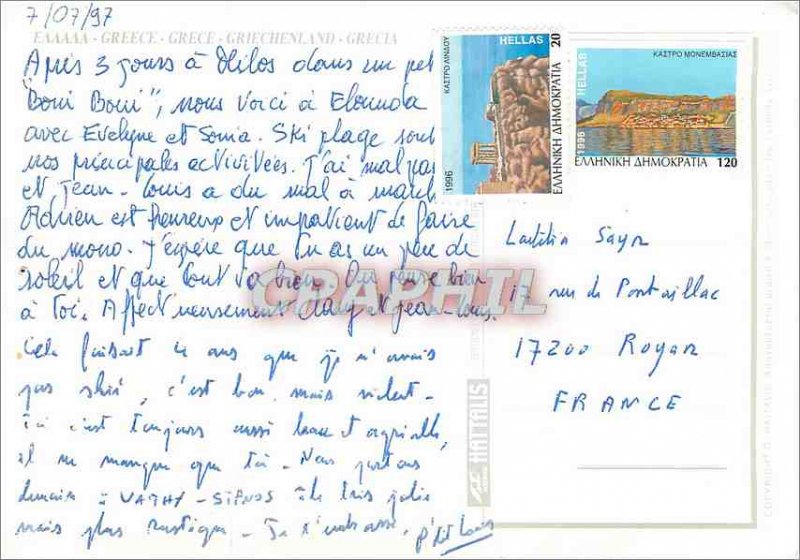 7/07/97
ΕΛΛΑΔΑ - GREECE - GRECE - GRIECHENLAND - GRECIA
Après 3 jours à Milos dans un pet
"Boui Boui", nous voici à Elounda
avec Evelyne et Sonia. Ski plage sont
nos principales activivées. J'ai mal pas
et Jean-Louis a du mal à march
Adrien est heureux et impatient de faire
du mono. J'espère que tu as un peu de
soleil et que tout va bien. On pense bien
à toi. Affectueusement Dany et Jean-Louis.
Cela faisait 4 ans que je n'avais
pas skié, c'est bon, mais violent.
Ici c'est toujours aussi beau et agréable,
il ne manque que toi. Nous partons
demain à VATHY - SIFNOS île très jolie
mais plus rustique. Je t'embrasse. p'tit Louis
ΚΑΣΤΡΟ ΛΙΝΔΟΥ
HELLAS 20
1996
ΕΛΛΗΝΙΚΗ ΔΗΜΟΚΡΑΤΙΑ
ΚΑΣΤΡΟ ΜΟΝΕΜΒΑΣΙΑΣ
HELLAS
1996
ΕΛΛΗΝΙΚΗ ΔΗΜΟΚΡΑΤΙΑ 120
Laetitia Sayn
17 rue de Pontaillac
17200 Royan
FRANCE
CPAPHIL
HAITALIS
COPYRIGHT © HAITALIS